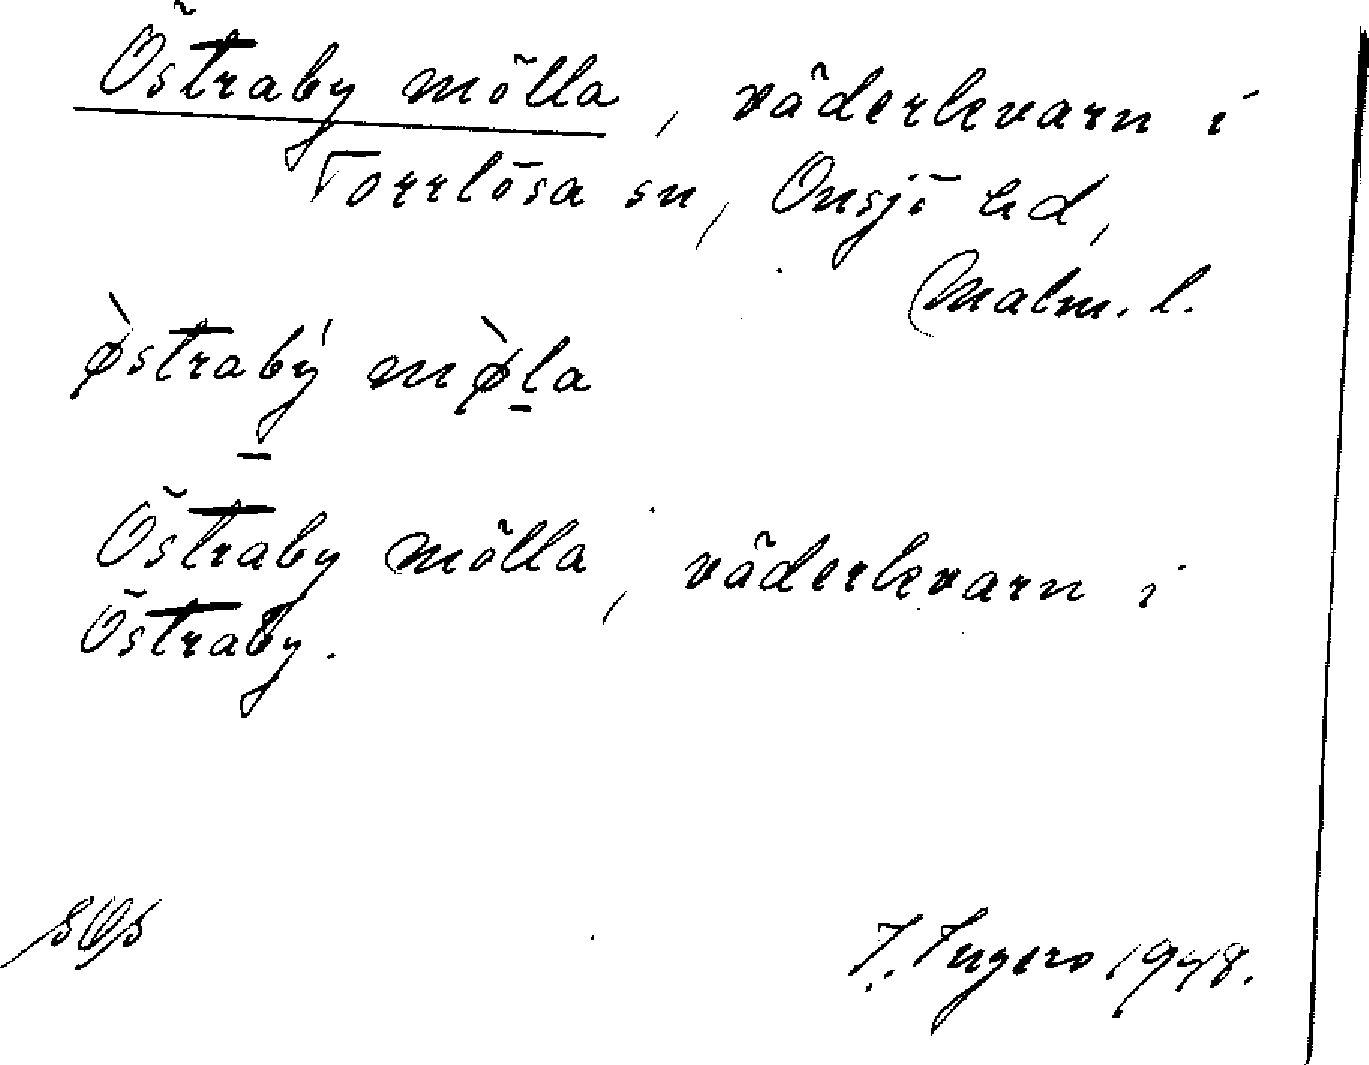 Östraby mölla, väderkvarn i
Torrlösa sn, Onsjö hd,
Malm. l.
ø̀strabý mø̀l̠a
Östraby mölla, väderkvarn i
Östraby.
I. Ingers 1948.